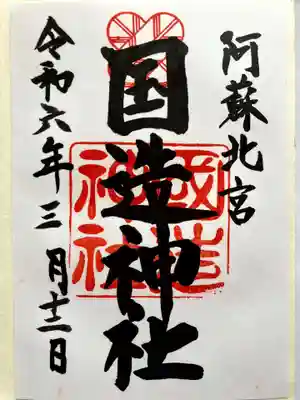 阿蘇北宮
国造神社
令和六年三月十二日
國造神社